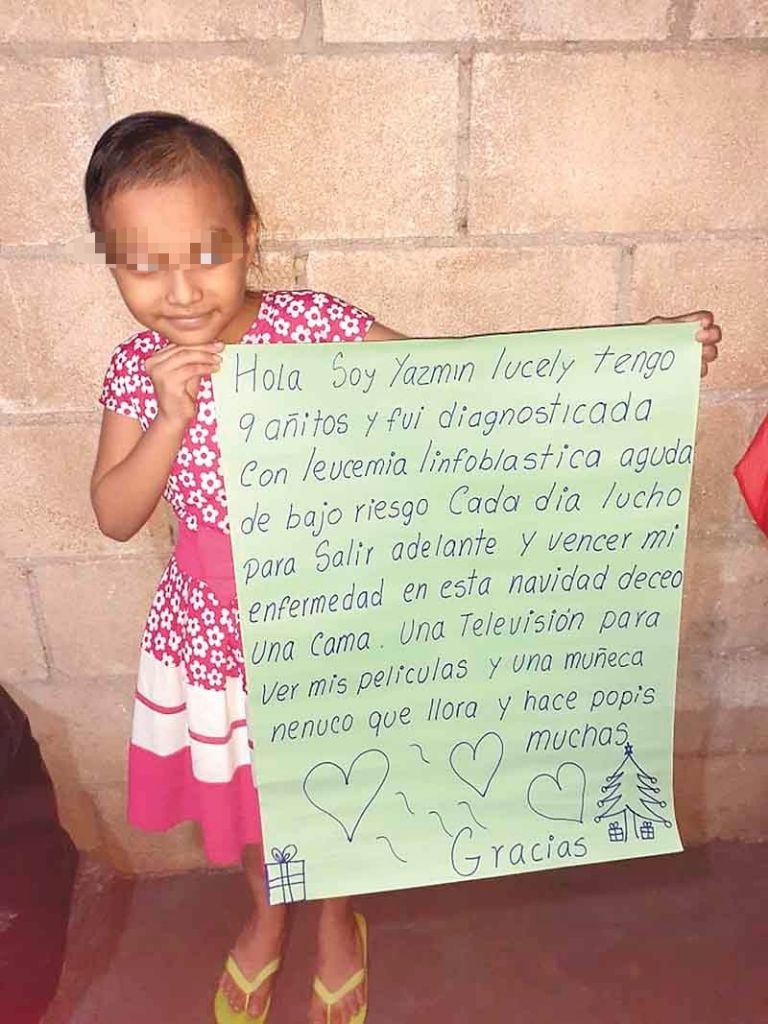 Hola Soy Yazmin lucely tengo
9 añitos y fui diagnosticada
Con leucemia linfoblastica aguda
de bajo riesgo Cada dia lucho
para Salir adelante y vencer mi
enfermedad en esta navidad deceo
una Cama. Una Televisión para
ver mis peliculas y una muñeca
nenuco que llora y hace popis
muchas
Gracias